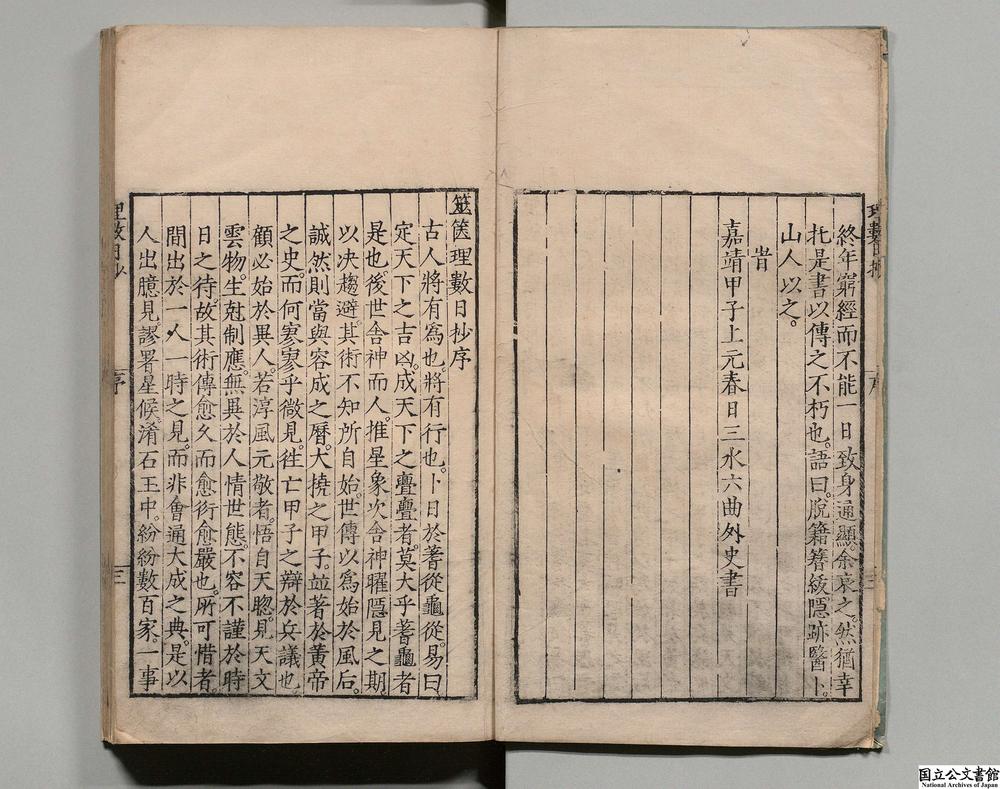 終年窮經而不能一日致身通顯。余哀之。然猶幸
托是書以傳之不朽也。語曰。脫籍簪紱。隱跡醫卜。
山人以之。
旹
嘉靖甲子上元春日三水六曲外史書
序
三
筮篋理數日抄序
古人將有為也。將有行也。卜日於蓍從龜從。易曰
定天下之吉凶。成天下之亹亹者。莫大乎蓍龜者
是也。後世舍神而人。推星象次舍神曜隱見之期
以决趨避。其術不知所自始。世傳以為始於風后。
誠然則當與容成之曆。大撓之甲子。並著於黃帝
之史。而何寥寥乎微見。徃亡甲子之辯於兵議也
顧必始於異人。若淳風元敬者。悟自天聦。見天文
雲物。生尅制應。無異於人情世態。不容不謹於時
日之待。故其術傳愈久而愈衍愈嚴也。所可惜者。
間出於一人一時之見。而非會通大成之典。是以
人出臆見。謬署星候。淆石王中。紛紛數百家。一事
理數日抄
序
三
国立公文書館
National Archives of Japan